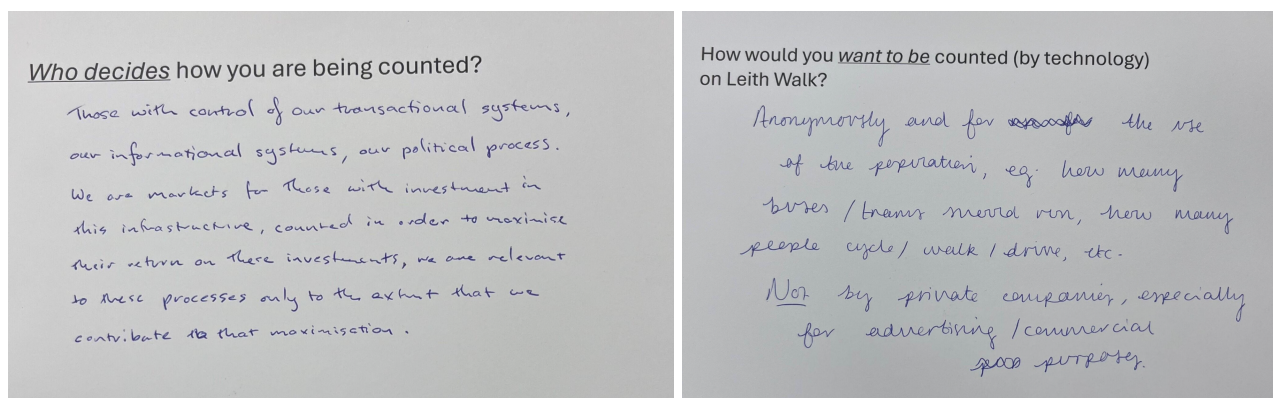 Who decides how you are being counted?
Those with control of our transactional systems,
our informational systems, our political process.
We are markets for those with investment in
this infrastructure, counted in order to maximise
their return on these investments, we are relevant
to these processes only to the extent that we
contribute to that maximisation.
How would you want to be counted (by technology)
on Leith Walk?
Anonymously and for the use
of the population, eg. how many
buses / trams should run, how many
people cycle / walk / drive, etc.
Not by private companies, especially
for advertising / commercial
purposes.